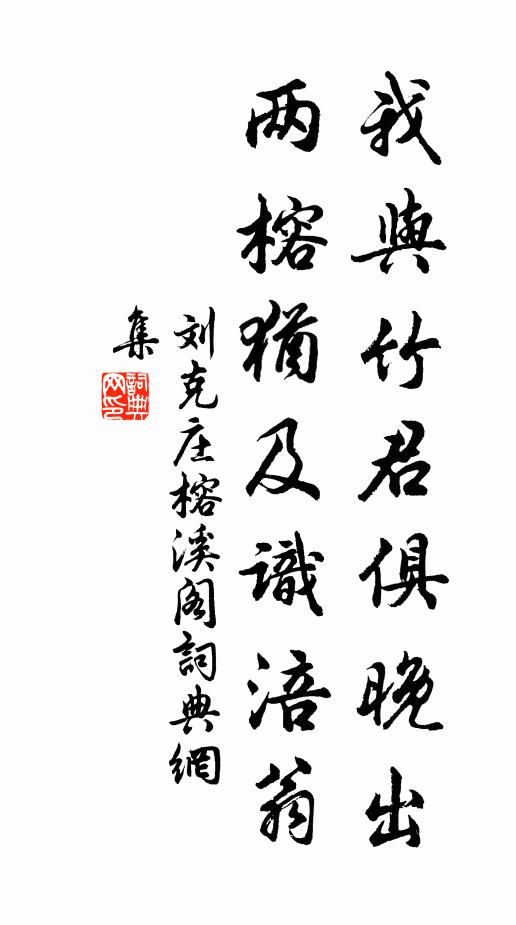 我與竹君俱晚出
两榕猶及識涪翁
刘克庄榕溪阁詞典網
集
詞典网印